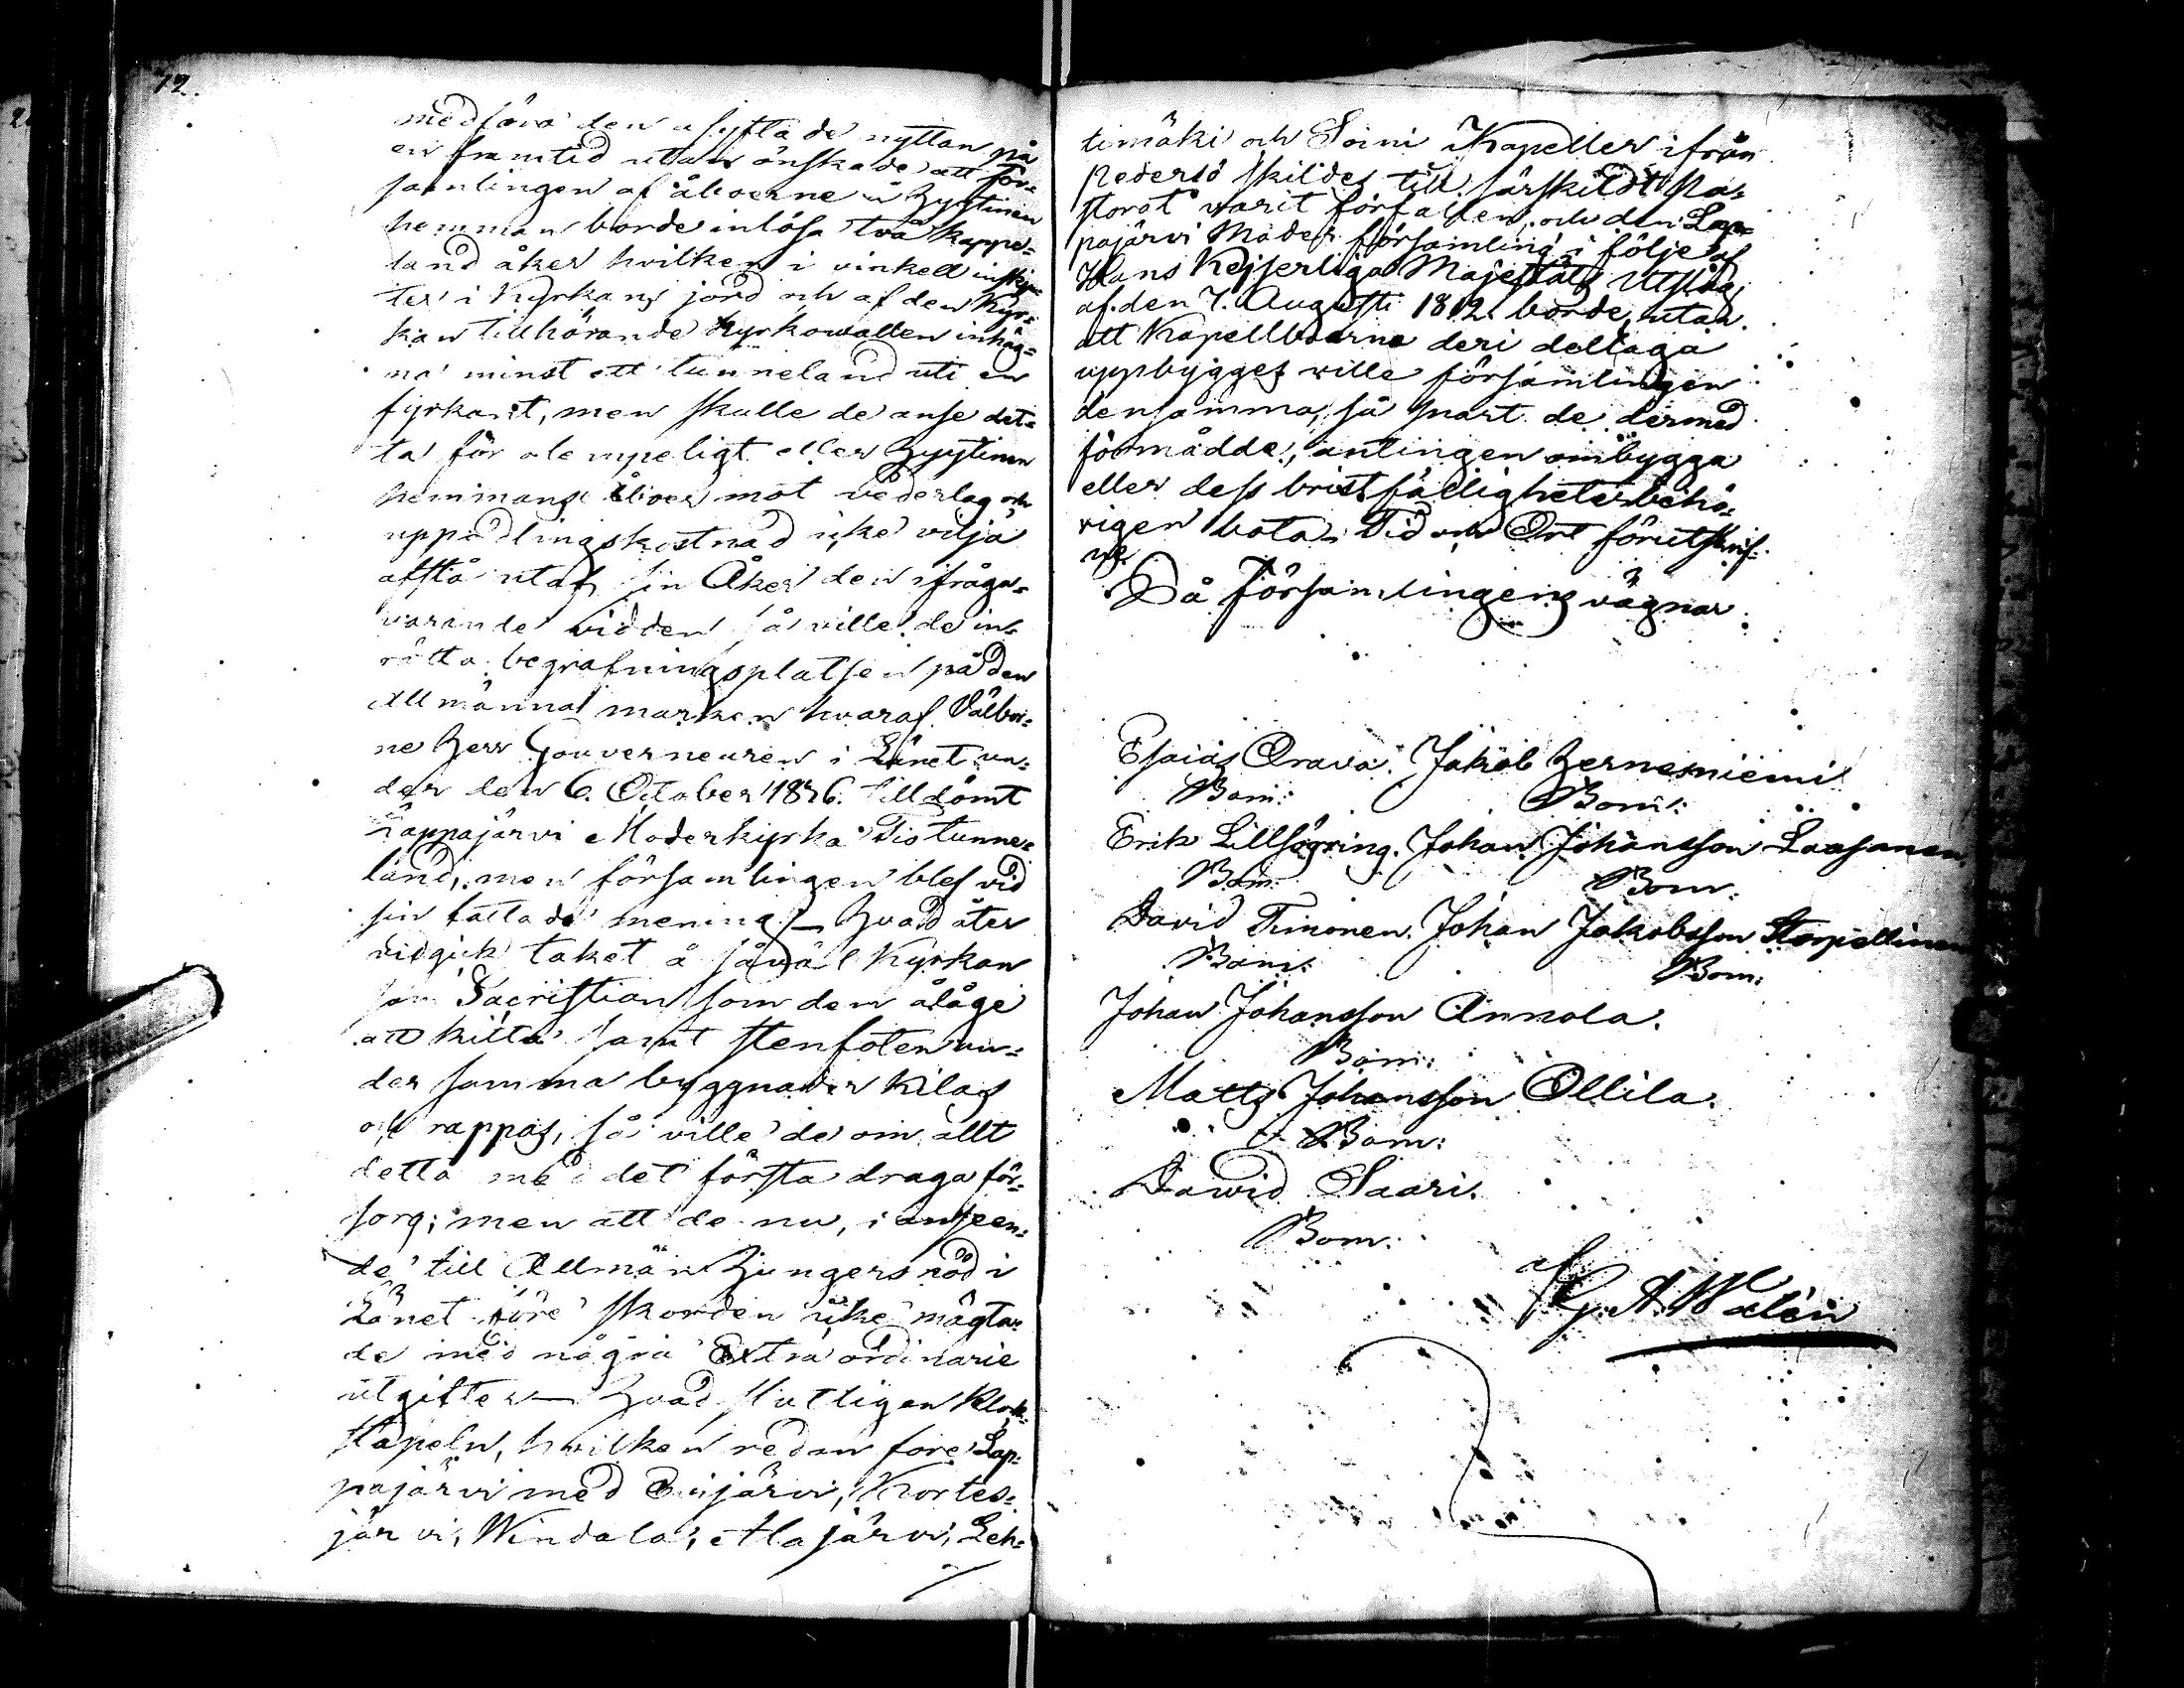 72.
medföra den asyftade nyttan på
en framtid utan önskade att för=
samlingen af åboerne å Hyytinen
hemman borde inlösa två kappe=
land åker hvilken i vinkell inskju=
ter i Kyrkans jord och af den Kyr=
kan tillhörande Kyrkowallen inhäg=
na minst ett tunneland uti en
fyrkant, men skulle de anse det=
ta för olempeligt eller Hyytinen
hemmans åboer mot vederlag och
uppodlingskostnad icke vilja
afstå utaf sin Åker den ifråga=
varande vidden så ville de in=
rätta begrafningsplatsen på den
Allmänna marken hvaraf Välbor=
ne Herr Gouverneuren i Länet un=
der den 6. October 1836. tilldömt
Lappajärvi Moderkyrka Tio tunne=
land, men församlingen blef vid
sin fattade mening. — Hvad åter
vidgick taket å såväl Kyrkan
som Sacristian som den ålåge
att kitta samt stenfoten un=
der samma byggnader kilas
och rappas, så ville de om allt
detta med det första draga för=
sorg; men att de nu, i anseen=
de till Allmän Hungersnöd i
Länet före skorden icke mägta=
de med några Extra ordinarie
utgifter — Hvad slutligen Klok=
stapeln, hvilken redan före Lap=
pajärvi med Evijärvi, Kortes=
järvi, Windala, Alajärvi, Leh=
timäki och Soini Kapeller ifrån
Pedersö skildes till särskildt Pa=
storat varit förfallen, och den Lap=
pajärvi Moder församling i följe af
Hans Kejserliga Majestäts Utslag
af den 7. Augusti 1812. borde, utan
att Kapellboarne deri deltaga
uppbygges ville församlingen
densamma, så snart de dermed
förmådde, antingen ombygga
eller dess bristfälligheter behö=
rigen bota. Tid och Ort förutskrif=
ne
På Församlingens vägnar.
Esaias Orava. Jakob Hernesniemi
Bom: Bom:
Erik Lillsögring. Johan Johansson Laasanen.
Bom: Bom:
David Timonen. Johan Jakobsson Storpellinen
Bom: Bom:
Johan Johansson Annala.
Bom:
Matts Johansson Ollila.
Bom:
Dawid Saari.
Bom:
af
G. A. Walén